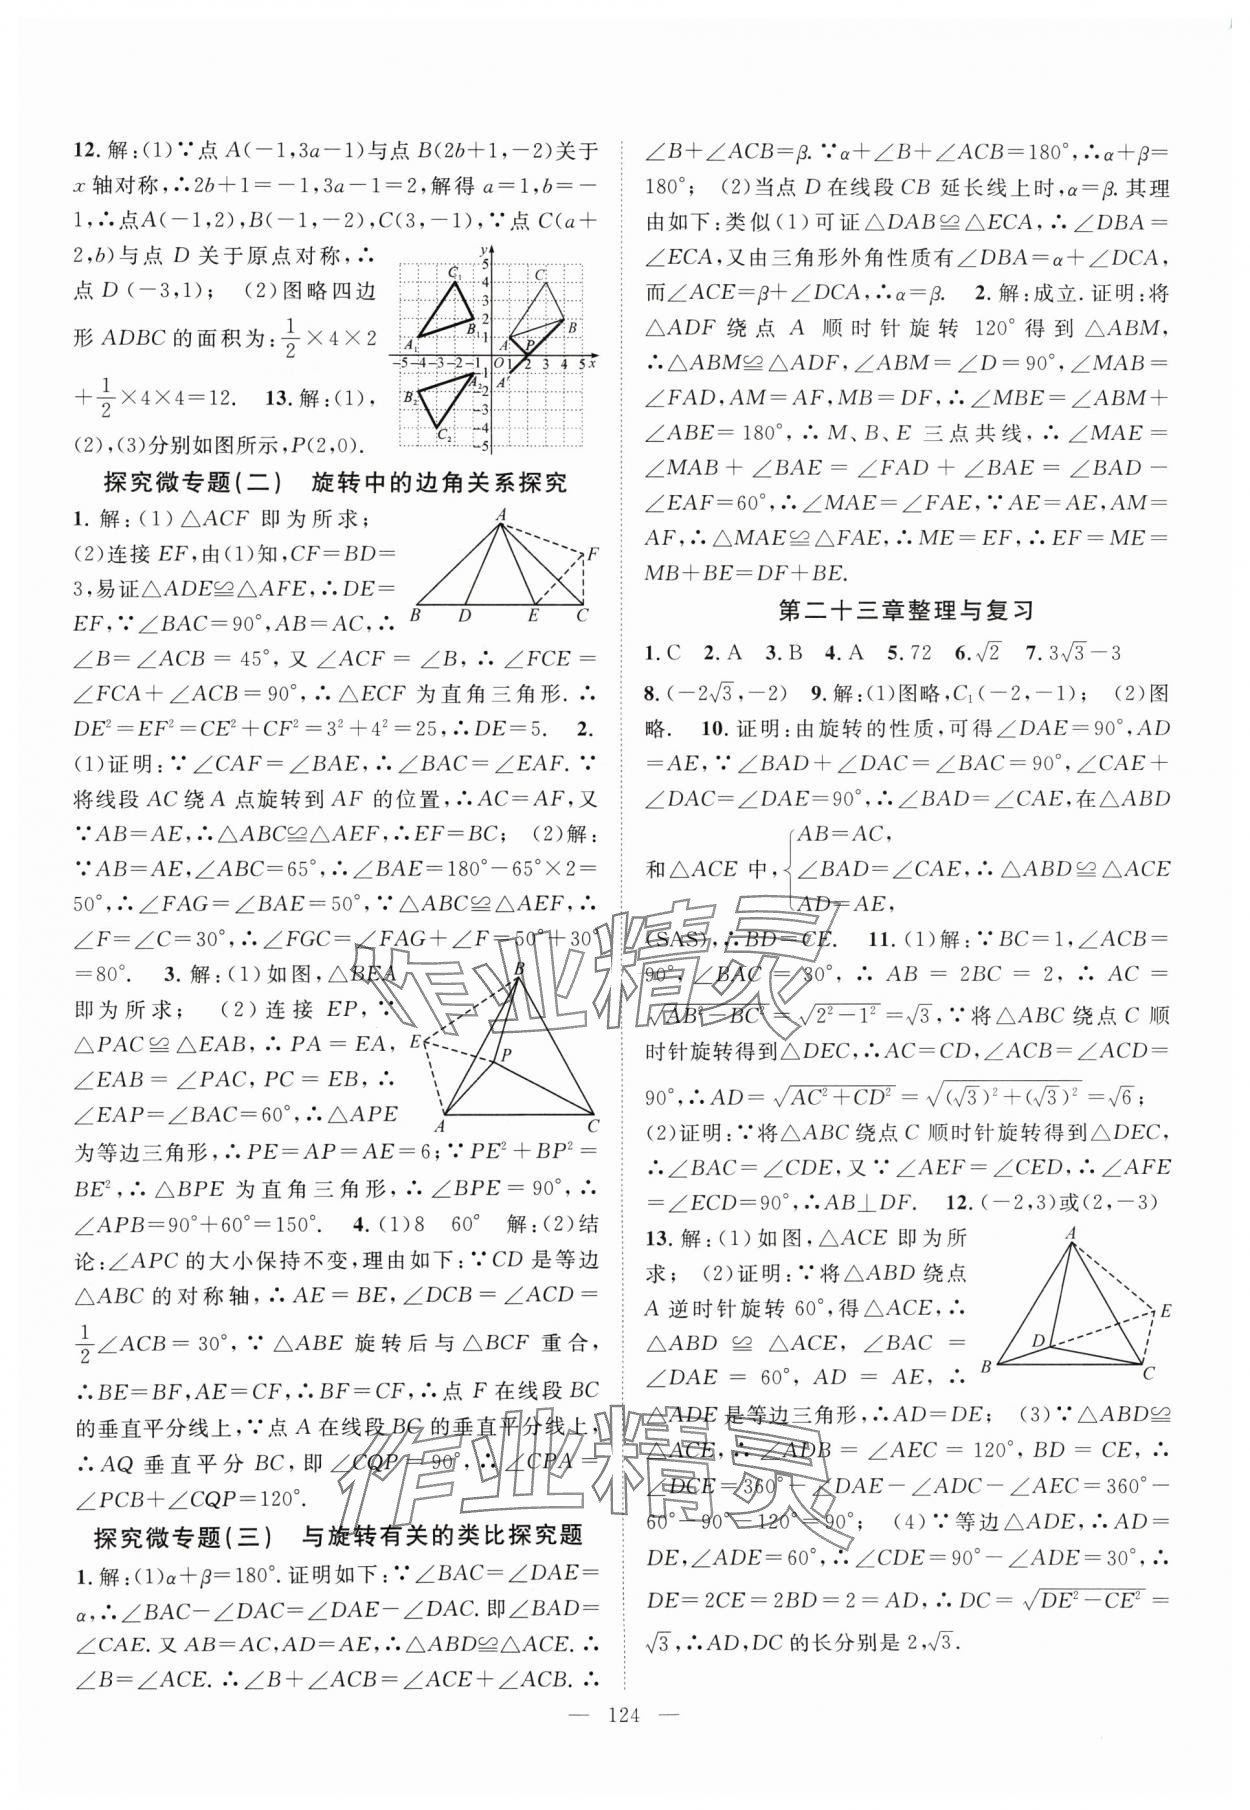 12.解:(1)∵点A(-1,3a-1)与点B(2b+1,-2)关于
x轴对称,∴2b+1=-1,3a-1=2,解得a=1,b=-
1,∴点A(-1,2),B(-1,-2),C(3,-1),∵点C(a+
2,b)与点D关于原点对称,∴
点D(-3,1); (2)图略四边
形ADBC的面积为:1/2×4×2
+1/2×4×4=12. 13.解:(1),
(2),(3)分别如图所示,P(2,0).
探究微专题(二) 旋转中的边角关系探究
1.解:(1)△ACF即为所求;
(2)连接EF,由(1)知,CF=BD=
3,易证△ADE≌△AFE,∴DE=
EF,∵∠BAC=90°,AB=AC,∴
∠B=∠ACB=45°,又∠ACF=∠B,∴∠FCE=
∠FCA+∠ACB=90°,∴△ECF为直角三角形.∴
DE²=EF²=CE²+CF²=3²+4²=25,∴DE=5. 2.
(1)证明:∵∠CAF=∠BAE,∴∠BAC=∠EAF.∵
将线段AC绕A点旋转到AF的位置,∴AC=AF,又
∵AB=AE,∴△ABC≌△AEF,∴EF=BC; (2)解:
∵AB=AE,∠ABC=65°,∴∠BAE=180°-65°×2=
50°,∴∠FAG=∠BAE=50°,∵△ABC≌△AEF,∴
∠F=∠C=30°,∴∠FGC=∠FAG+∠F=50°+30°
=80°. 3.解:(1)如图,△BEA
即为所求; (2)连接EP,∵
△PAC≌△EAB,∴PA=EA,
∠EAB=∠PAC,PC=EB,∴
∠EAP=∠BAC=60°,∴△APE
为等边三角形,∴PE=AP=AE=6;∵PE²+BP²=
BE²,∴△BPE为直角三角形,∴∠BPE=90°,∴
∠APB=90°+60°=150°. 4.(1)8 60° 解:(2)结
论:∠APC的大小保持不变,理由如下:∵CD是等边
△ABC的对称轴,∴AE=BE,∠DCB=∠ACD=
1/2∠ACB=30°,∵△ABE旋转后与△BCF重合,
∴BE=BF,AE=CF,∴BF=CF,∴点F在线段BC
的垂直平分线上,∵点A在线段BC的垂直平分线上,
∴AQ垂直平分BC,即∠CQP=90°,∴∠CPA=
∠PCB+∠CQP=120°.
探究微专题(三) 与旋转有关的类比探究题
1.解:(1)α+β=180°.证明如下:∵∠BAC=∠DAE=
α,∴∠BAC-∠DAC=∠DAE-∠DAC.即∠BAD=
∠CAE.又AB=AC,AD=AE,∴△ABD≌△ACE.∴
∠B=∠ACE.∴∠B+∠ACB=∠ACE+∠ACB.∴
∠B+∠ACB=β.∵α+∠B+∠ACB=180°,∴α+β=
180°; (2)当点D在线段CB延长线上时,α=β.其理
由如下:类似(1)可证△DAB≌△ECA,∴∠DBA=
∠ECA,又由三角形外角性质有∠DBA=α+∠DCA,
而∠ACE=β+∠DCA,∴α=β. 2.解:成立.证明:将
△ADF绕点A顺时针旋转120°得到△ABM,
∴△ABM≌△ADF,∠ABM=∠D=90°,∠MAB=
∠FAD,AM=AF,MB=DF,∴∠MBE=∠ABM+
∠ABE=180°,∴M、B、E三点共线,∴∠MAE=
∠MAB+∠BAE=∠FAD+∠BAE=∠BAD-
∠EAF=60°,∴∠MAE=∠FAE,∵AE=AE,AM=
AF,∴△MAE≌△FAE,∴ME=EF,∴EF=ME=
MB+BE=DF+BE.
第二十三章整理与复习
1.C 2.A 3.B 4.A 5.72 6.√2 7.3√3-3
8.(-2√3,-2) 9.解:(1)图略,C₁(-2,-1); (2)图
略. 10.证明:由旋转的性质,可得∠DAE=90°,AD
=AE,∵∠BAD+∠DAC=∠BAC=90°,∠CAE+
∠DAC=∠DAE=90°,∴∠BAD=∠CAE,在△ABD
和△ACE中,{AB=AC,
∠BAD=∠CAE,∴△ABD≌△ACE
AD=AE,
(SAS),∴BD=CE. 11.(1)解:∵BC=1,∠ACB=
90°,∠BAC=30°,∴AB=2BC=2,∴AC=
√(AB²-BC²)=√(2²-1²)=√3,∵将△ABC绕点C顺
时针旋转得到△DEC,∴AC=CD,∠ACB=∠ACD=
90°,∴AD=√(AC²+CD²)=√((√3)²+(√3)²)=√6;
(2)证明:∵将△ABC绕点C顺时针旋转得到△DEC,
∴∠BAC=∠CDE,又∵∠AEF=∠CED,∴∠AFE
=∠ECD=90°,∴AB⊥DF. 12.(-2,3)或(2,-3)
13.解:(1)如图,△ACE即为所
求; (2)证明:∵将△ABD绕点
A逆时针旋转60°,得△ACE,∴
△ABD≌△ACE,∠BAC=
∠DAE=60°,AD=AE,∴
△ADE是等边三角形,∴AD=DE; (3)∵△ABD≌
△ACE,∴∠ADB=∠AEC=120°,BD=CE,∴
∠DCE=360°-∠DAE-∠ADC-∠AEC=360°-
60°-90°-120°=90°; (4)∵等边△ADE,∴AD=
DE,∠ADE=60°,∴∠CDE=90°-∠ADE=30°,∴
DE=2CE=2BD=2=AD,∴DC=√(DE²-CE²)=
√3,∴AD,DC的长分别是2,√3.
— 124 —
作业精灵
作业精灵